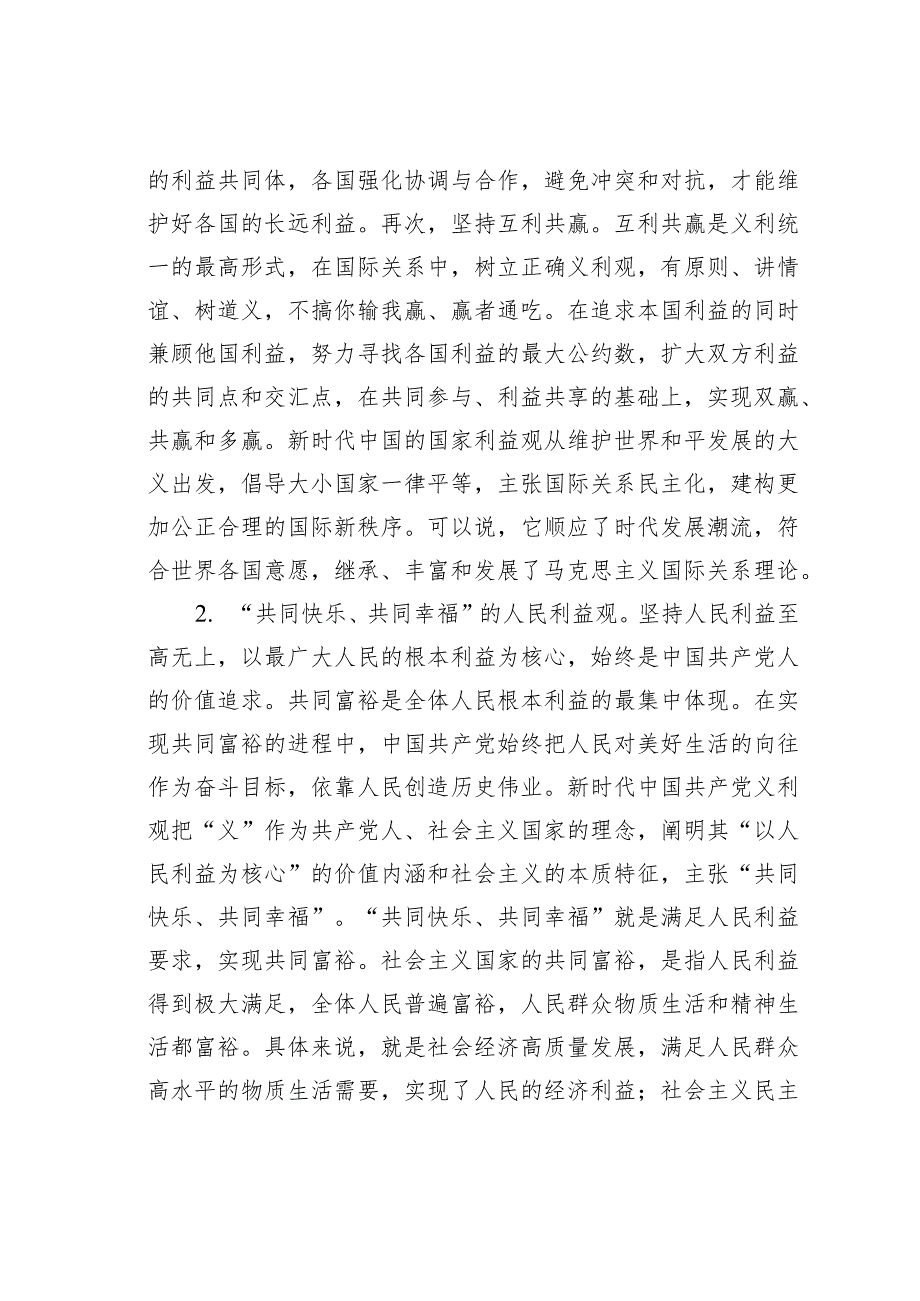 的利益共同体，各国强化协调与合作，避免冲突和对抗，才能维
护好各国的长远利益。再次，坚持互利共赢。互利共赢是义利统
一的最高形式，在国际关系中，树立正确义利观，有原则、讲情
谊、树道义，不搞你输我赢、赢者通吃。在追求本国利益的同时
兼顾他国利益，努力寻找各国利益的最大公约数，扩大双方利益
的共同点和交汇点，在共同参与、利益共享的基础上，实现双赢、
共赢和多赢。新时代中国的国家利益观从维护世界和平发展的大
义出发，倡导大小国家一律平等，主张国际关系民主化，建构更
加公正合理的国际新秩序。可以说，它顺应了时代发展潮流，符
合世界各国意愿，继承、丰富和发展了马克思主义国际关系理论。
2. “共同快乐、共同幸福”的人民利益观。坚持人民利益至
高无上，以最广大人民的根本利益为核心，始终是中国共产党人
的价值追求。共同富裕是全体人民根本利益的最集中体现。在实
现共同富裕的进程中，中国共产党始终把人民对美好生活的向往
作为奋斗目标，依靠人民创造历史伟业。新时代中国共产党义利
观把“义”作为共产党人、社会主义国家的理念，阐明其“以人
民利益为核心”的价值内涵和社会主义的本质特征，主张“共同
快乐、共同幸福”。“共同快乐、共同幸福”就是满足人民利益
要求，实现共同富裕。社会主义国家的共同富裕，是指人民利益
得到极大满足，全体人民普遍富裕，人民群众物质生活和精神生
活都富裕。具体来说，就是社会经济高质量发展，满足人民群众
高水平的物质生活需要，实现了人民的经济利益；社会主义民主